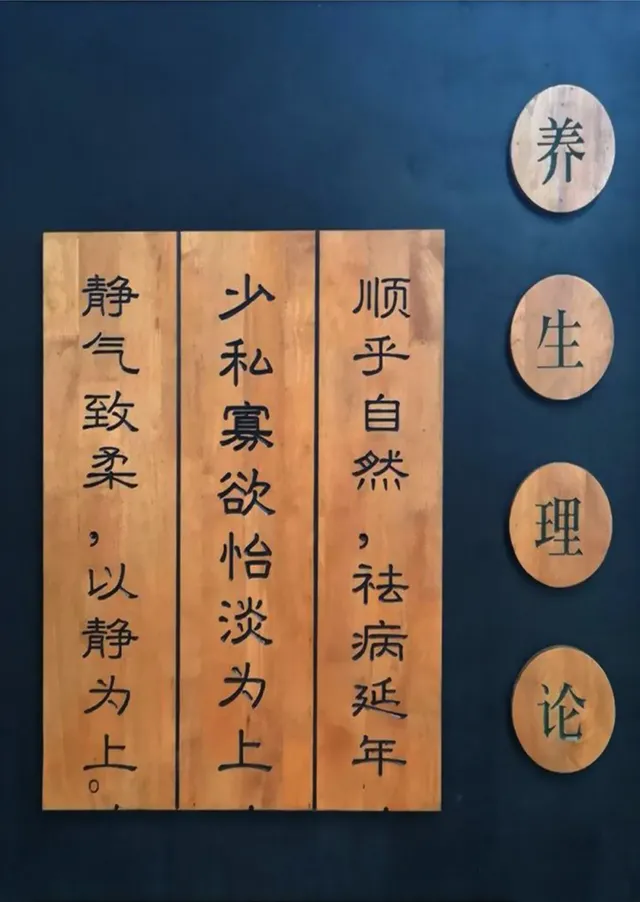 养生理论
顺乎自然，祛病延年
少私寡欲怡淡为上
静气致柔，以静为上。